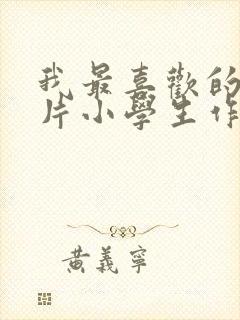 我最喜歡的
片小學生作
黃義寧